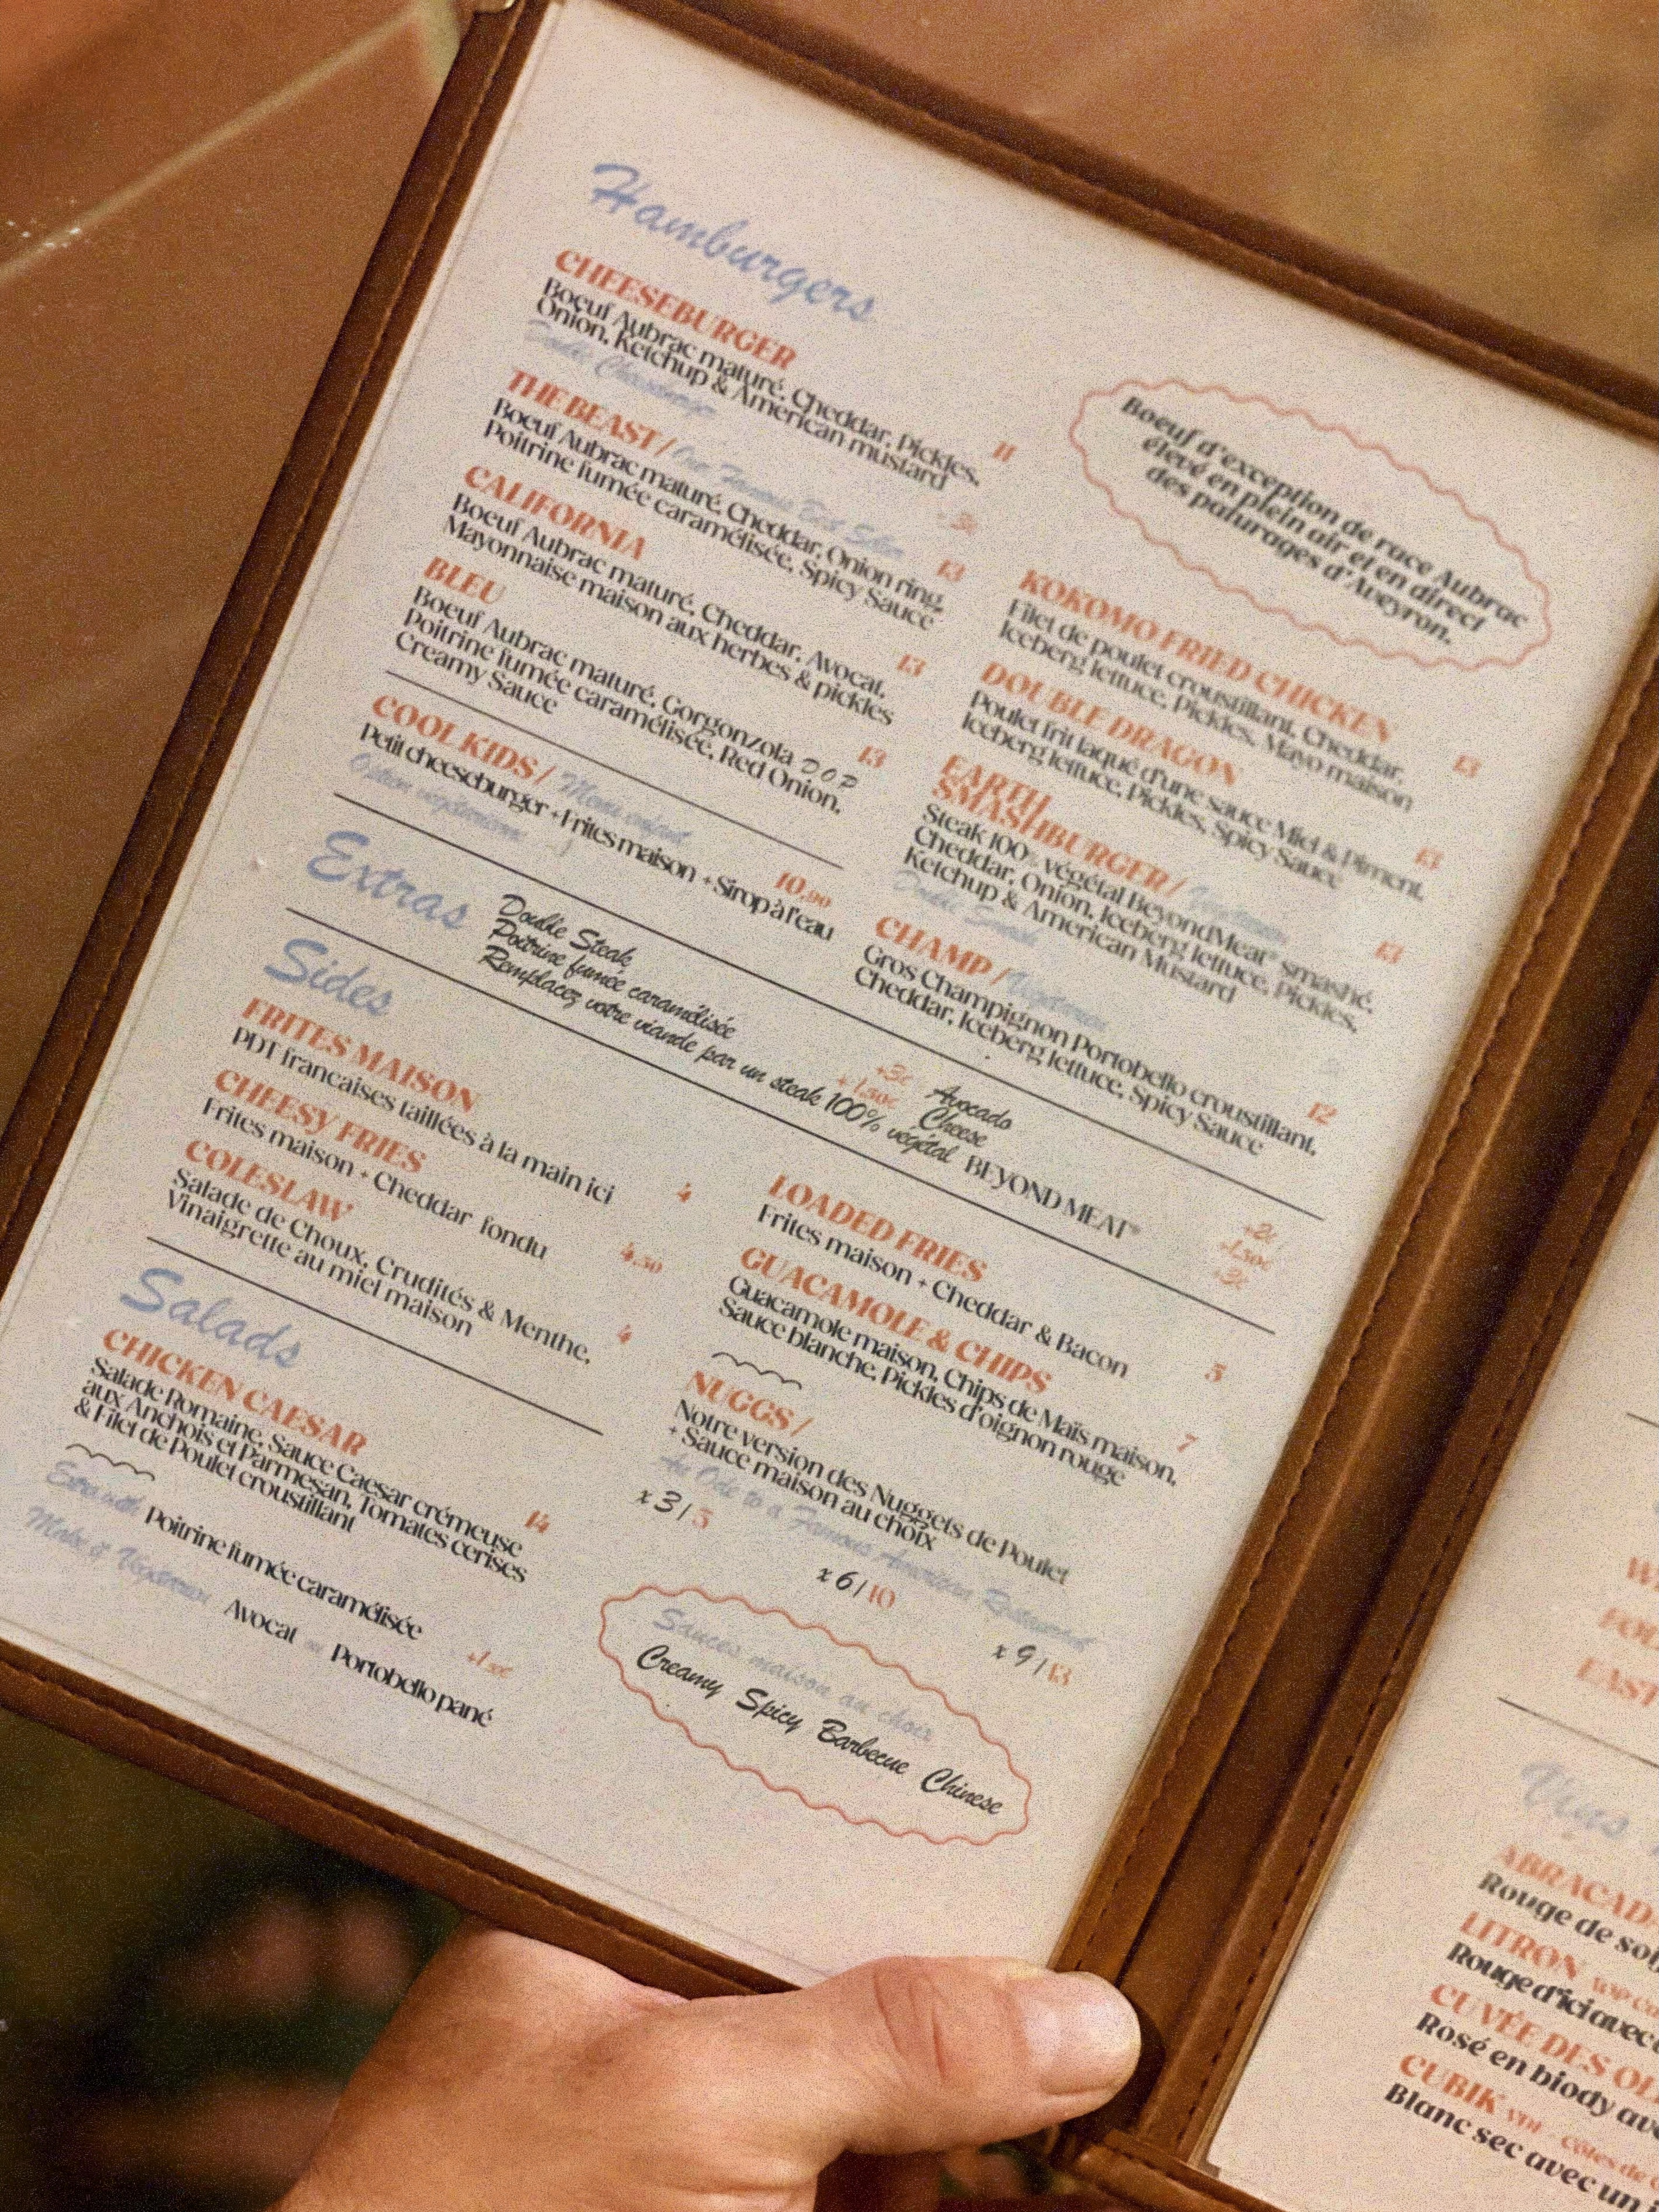 Hamburgers
CHEESEBURGER
Boeuf Aubrac maturé, Cheddar, Pickles, 11
Onion, Ketchup & American mustard
Double Cheeseburger + 3€
THE BEAST / Our Famous Best Seller
Boeuf Aubrac maturé, Cheddar, Onion ring, 13
Poitrine fumée caramélisée, Spicy Sauce
CALIFORNIA
Boeuf Aubrac maturé, Cheddar, Avocat, 13
Mayonnaise maison aux herbes & pickles
BLEU
Boeuf Aubrac maturé, Gorgonzola DOP 13
Poitrine fumée caramélisée, Red Onion,
Creamy Sauce
COOL KIDS / Menu enfant 10,90
Petit cheeseburger + Frites maison + Sirop à l'eau
Option végétarienne
Boeuf d'exception de race Aubrac
élevé en plein air et en direct
des paturages d'Aveyron.
KOKOMO FRIED CHICKEN
Filet de poulet croustillant, Cheddar, 13
Iceberg lettuce, Pickles, Mayo maison
DOUBLE DRAGON
Poulet frit laqué d'une sauce Miel & Piment, 13
Iceberg lettuce, Pickles, Spicy Sauce
EARTH
SMASHBURGER / Végétarien
Steak 100% végétal BeyondMeat® smashé, 13
Cheddar, Onion, Iceberg lettuce, Pickles,
Ketchup & American Mustard
Double Smash
CHAMP / Végétarien
Gros Champignon Portobello croustillant, 12
Cheddar, Iceberg lettuce, Spicy Sauce
Extras
Double Steak +3€
Poitrine fumée caramélisée +1.50€
Remplacez votre viande par un steak 100% végétal BEYOND MEAT® +3€
Avocado +2€
Cheese +1.50€
Sides
FRITES MAISON
PDT francaises taillées à la main ici 4
CHEESY FRIES
Frites maison + Cheddar fondu 4.50
COLESLAW
Salade de Choux, Crudités & Menthe, 4
Vinaigrette au miel maison
LOADED FRIES
Frites maison + Cheddar & Bacon 5
GUACAMOLE & CHIPS
Guacamole maison, Chips de Maïs maison, 7
Sauce blanche, Pickles d'oignon rouge
NUGGS /
Notre version des Nuggets de Poulet
+ Sauce maison au choix
An Ode to a Famous American Restaurant
x 3 / 5
x 6 / 10
x 9 / 13
Sauces maison au choix
Creamy Spicy Barbecue Chinese
Salads
CHICKEN CAESAR
Salade Romaine, Sauce Caesar crémeuse 14
aux Anchois et Parmesan, Tomates cerises
& Filet de Poulet croustillant
Extra with Poitrine fumée caramélisée
Make it Vegetarian Avocat Portobello pané
Vins
ABRACAD
Rouge de
LITRON
Rouge d'ici avec
CUVÉE DES
Rosé en biody
CUBIK
Blanc sec avec un